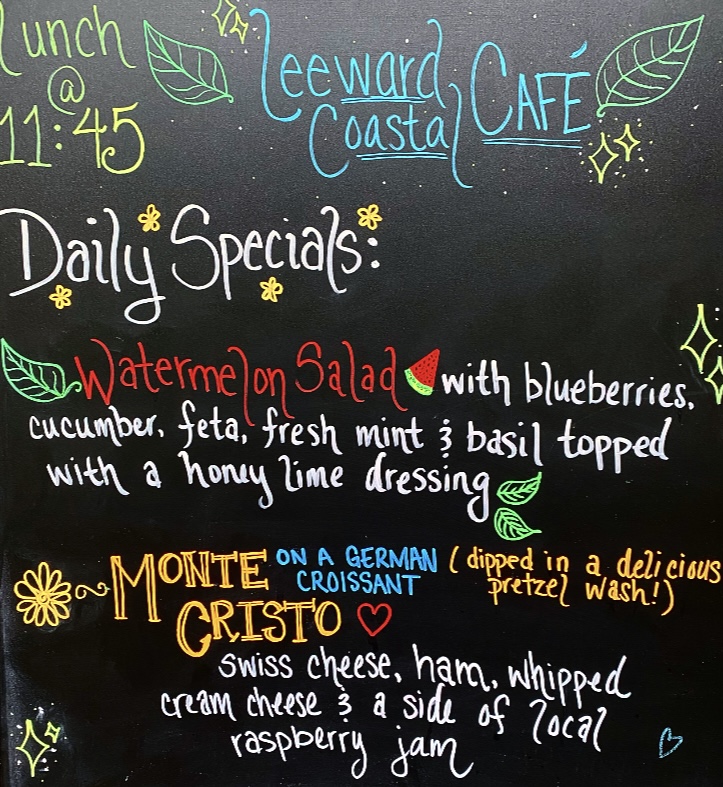 Lunch
@
11:45
Leeward
Coastal CAFÉ
Daily Specials:
Watermelon Salad with blueberries,
cucumber, feta, fresh mint & basil topped
with a honey lime dressing
MONTE CRISTO ON A GERMAN CROISSANT (dipped in a delicious pretzel wash!)
swiss cheese, ham, whipped
cream cheese & a side of local
raspberry jam